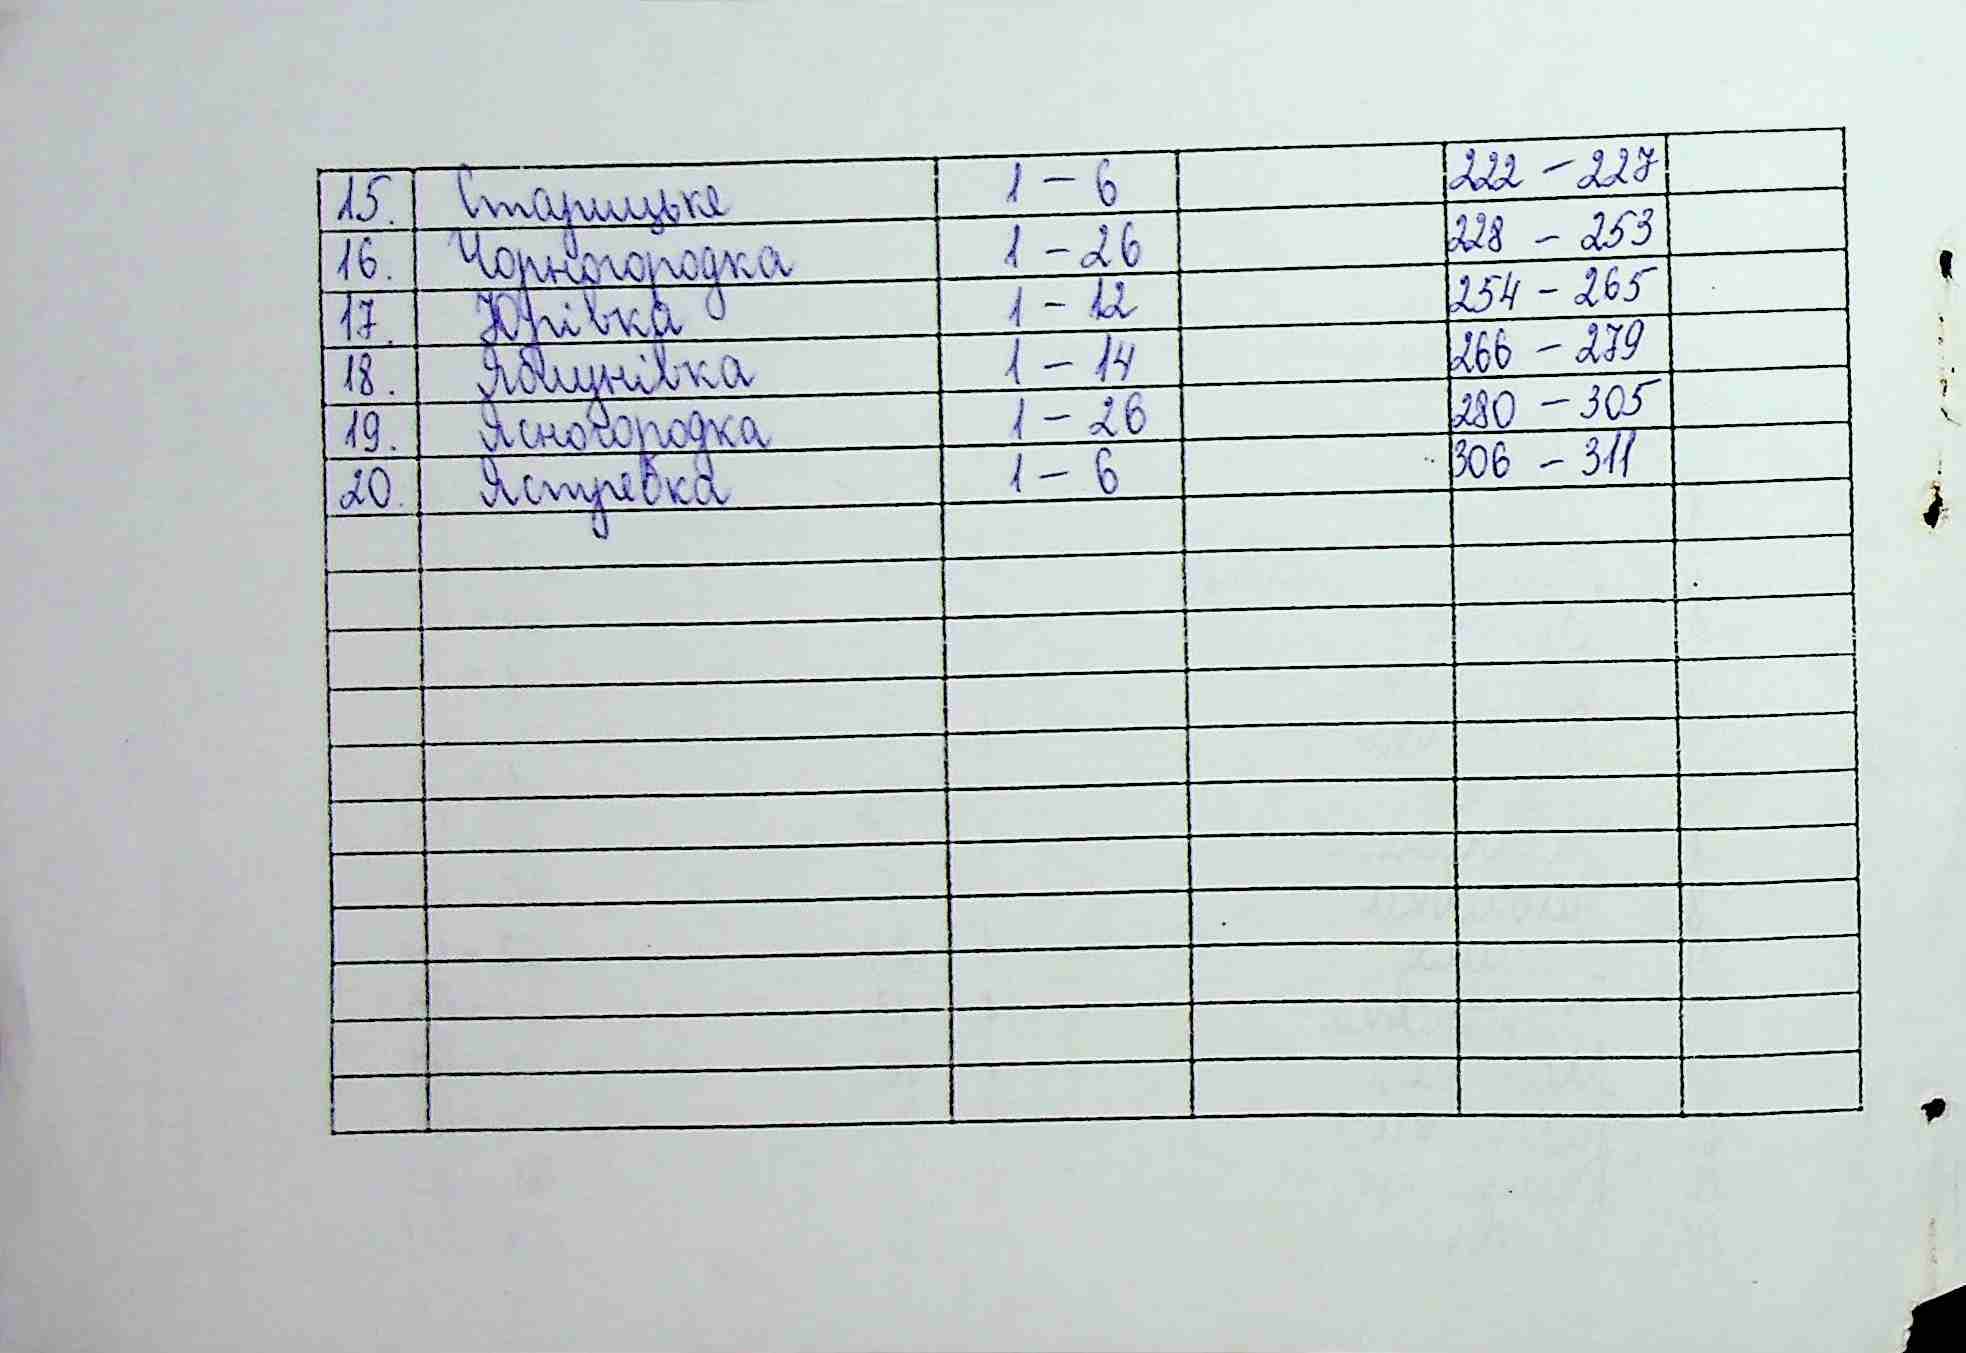 15. Старицьке 1 – 6 222 – 227
16. Чорногородка 1 – 26 228 – 253
17. Юрівка 1 – 12 254 – 265
18. Яблунівка 1 – 14 266 – 279
19. Ясногородка 1 – 26 280 – 305
20. Ястребка 1 – 6 306 – 311